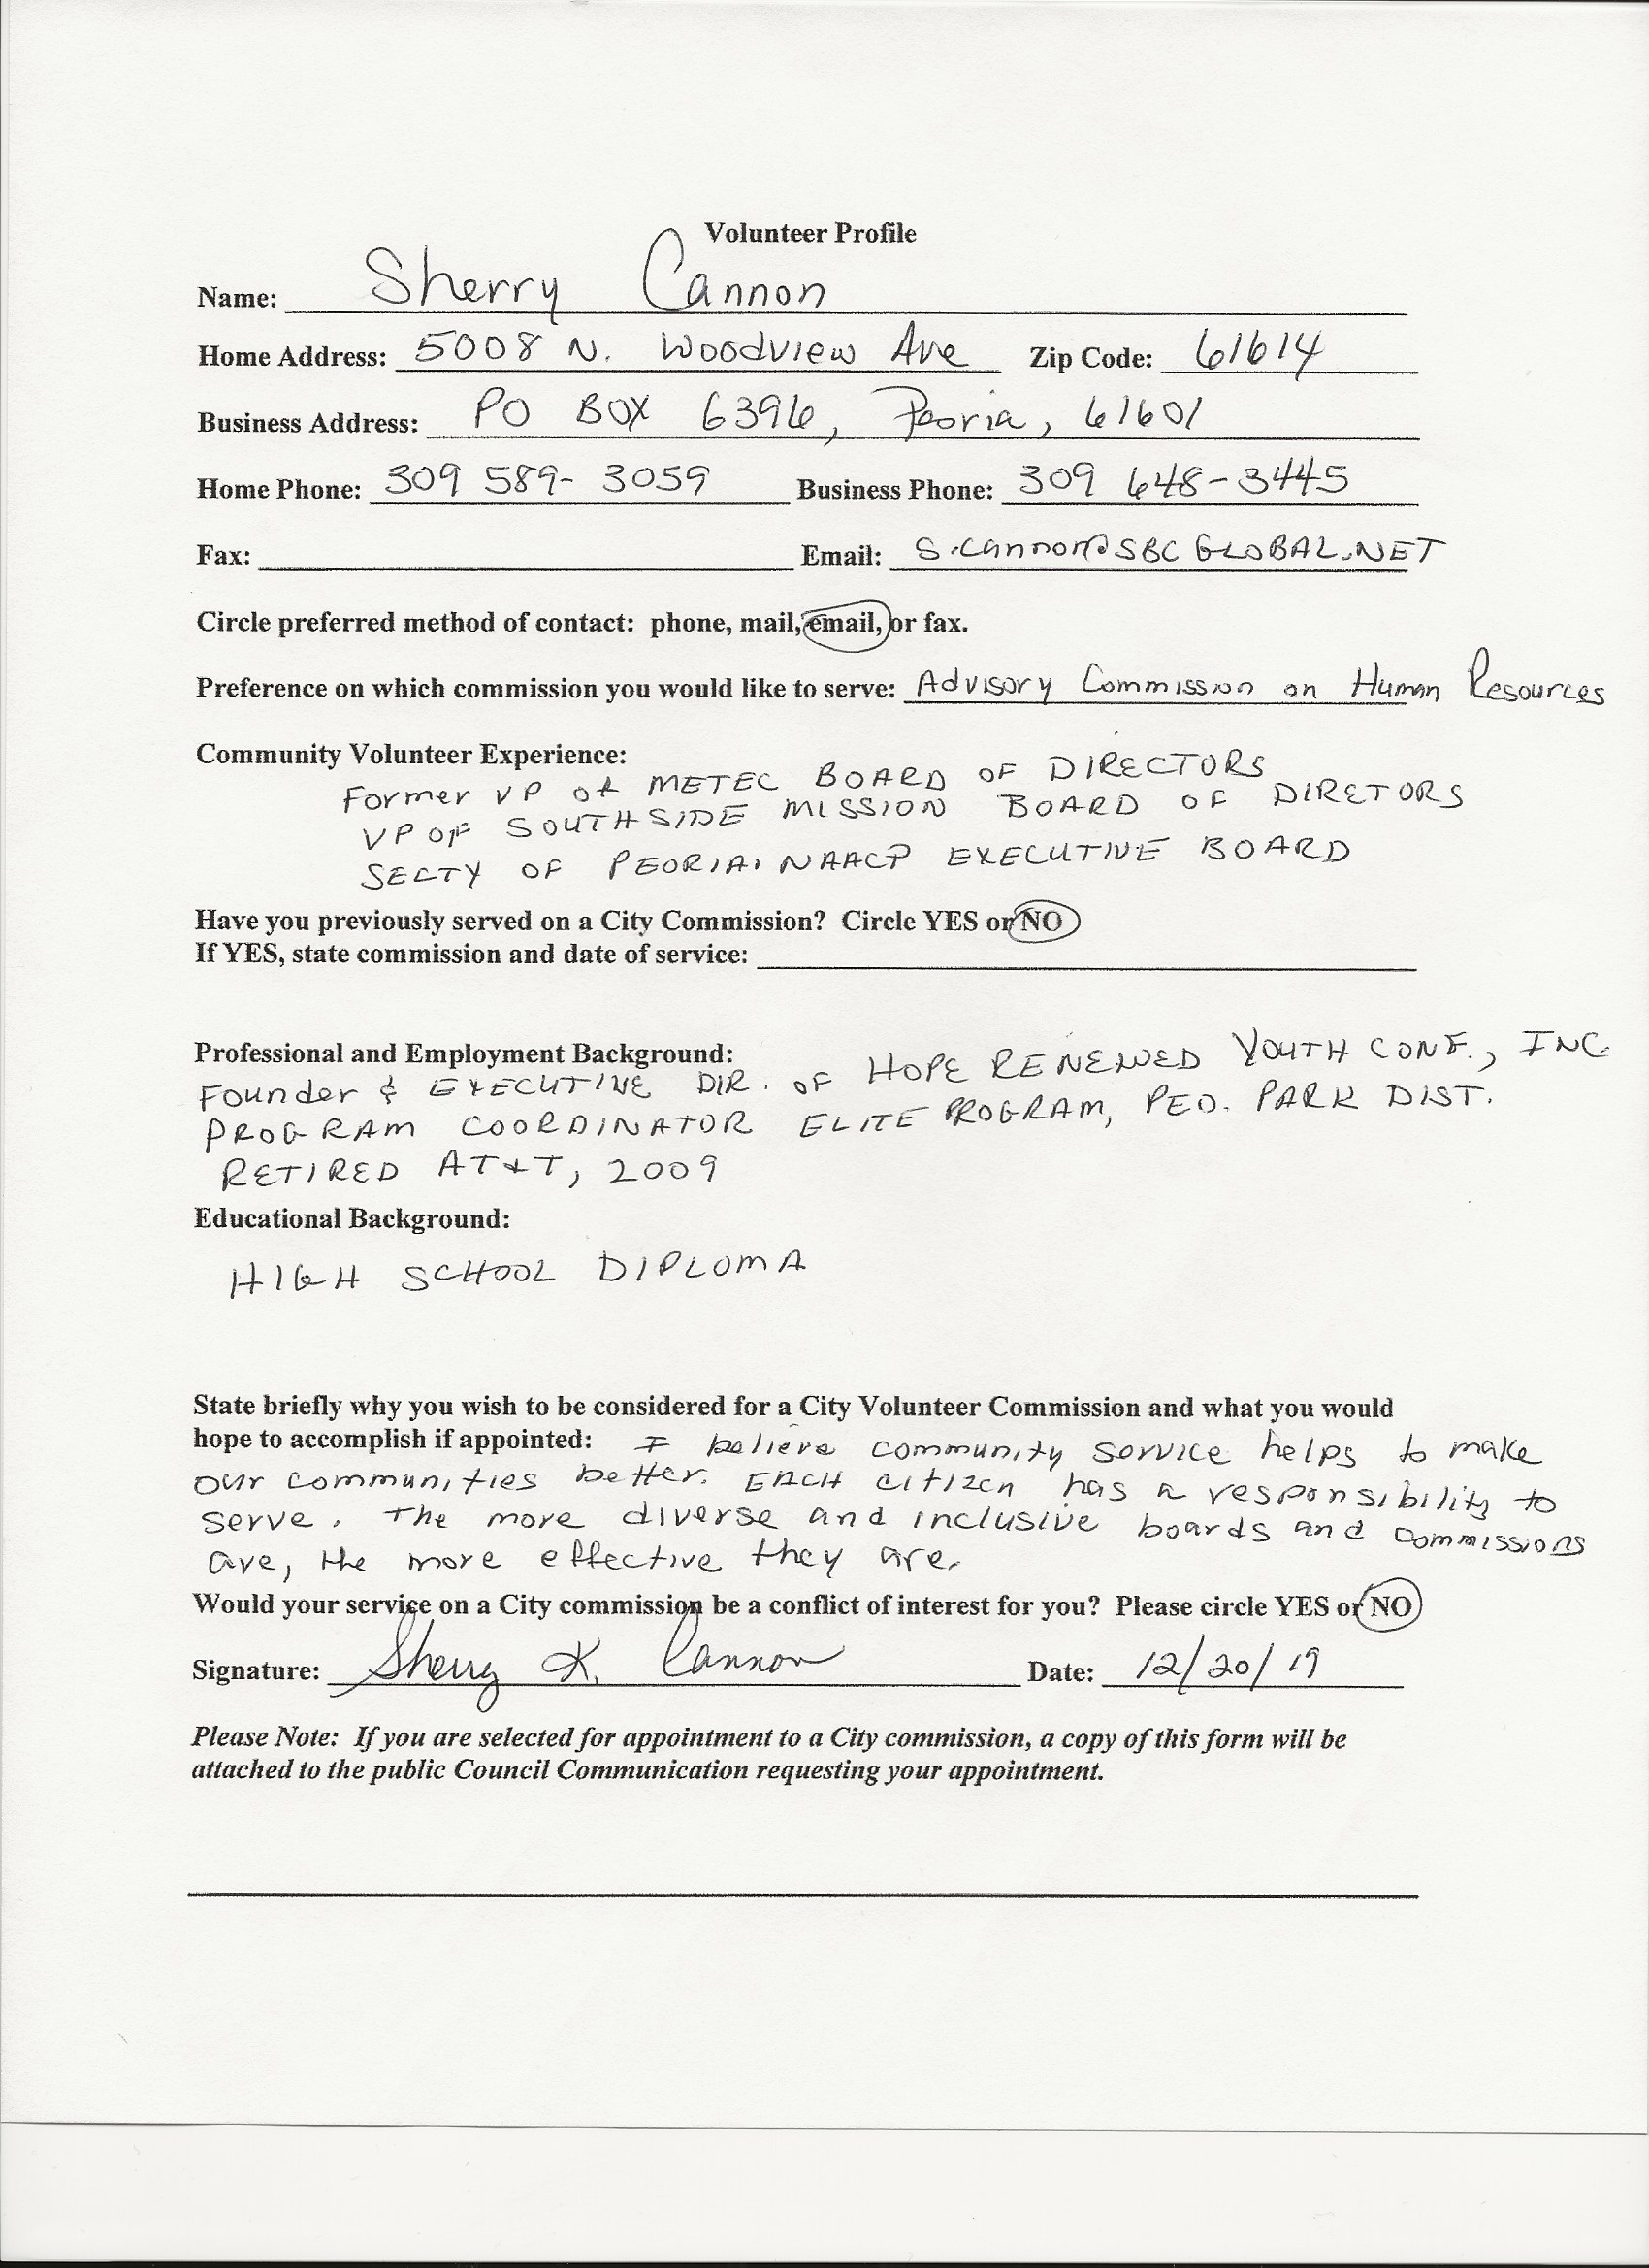 Volunteer Profile
Name: Sherry Cannon
Home Address: 5008 N. Woodview Ave Zip Code: 61614
Business Address: PO BOX 6396, Peoria, 61601
Home Phone: 309 589-3059 Business Phone: 309 648-3445
Fax: Email: S.cannon@SBCGLOBAL.NET
Circle preferred method of contact: phone, mail, email, or fax.
Preference on which commission you would like to serve: Advisory Commission on Human Resources
Community Volunteer Experience:
Former VP of METEC BOARD OF DIRECTORS
VP OF SOUTHSIDE MISSION BOARD OF DIRETORS
SECTY OF PEORIA NAACP EXECUTIVE BOARD
Have you previously served on a City Commission? Circle YES or NO
If YES, state commission and date of service:
Professional and Employment Background:
Founder & EXECUTIVE DIR. OF HOPE RENEWED YOUTH CONF., INC
PROGRAM COORDINATOR ELITE PROGRAM, PEO. PARK DIST.
RETIRED AT&T, 2009
Educational Background:
HIGH SCHOOL DIPLOMA
State briefly why you wish to be considered for a City Volunteer Commission and what you would
hope to accomplish if appointed: I believe community service helps to make
our communities better. EACH citizen has a responsibility to
serve. The more diverse and inclusive boards and commissions
are, the more effective they are.
Would your service on a City commission be a conflict of interest for you? Please circle YES or NO
Signature: Sherry K. Cannon Date: 12/20/19
Please Note: If you are selected for appointment to a City commission, a copy of this form will be
attached to the public Council Communication requesting your appointment.